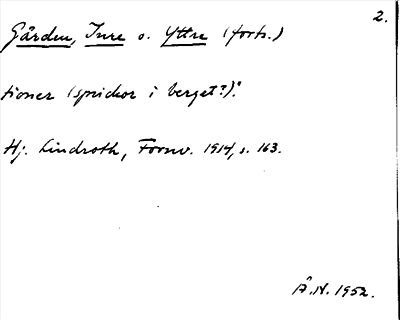 2.
Gården, Inre o. Yttre (forts.)
tioner (sprickor i berget?)."
Hj. Lindroth, Fornv. 1914, s. 163.
Å.N. 1952.